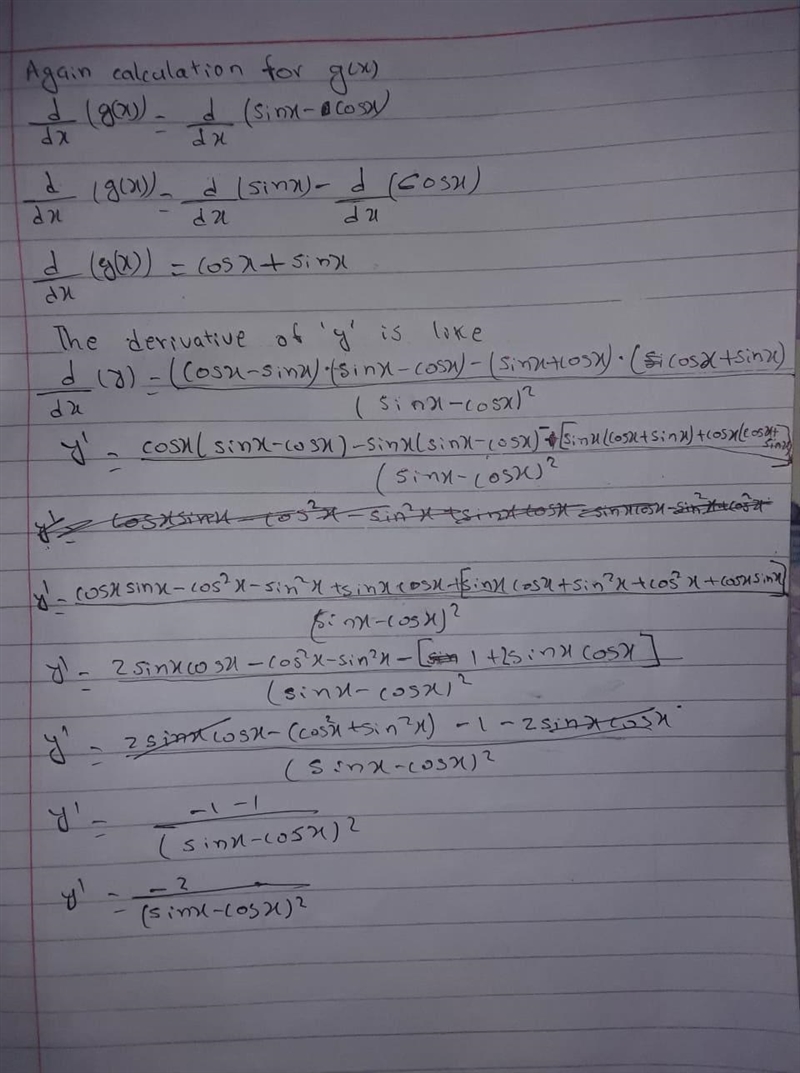 Again calculation for g(x)
d/dx (g(x)) = d/dx (sinx - cosx)
d/dx (g(x)) = d/dx (sinx) - d/dx (cosx)
d/dx (g(x)) = cosx + sinx
The derivative of 'y' is like
d/dx (y) = (cosx - sinx)·(sinx - cosx) - (sinx + cosx)·(cosx + sinx) / (sinx - cosx)²
y' = cosx(sinx - cosx) - sinx(sinx - cosx) - [sinx(cosx + sinx) + cosx(cosx + sinx)] / (sinx - cosx)²
y' = cosxsinx - cos²x - sin²x + sinxcosx - sinxcosx - sin²x + cos²x
y' = cosx sinx - cos²x - sin²x + sinx cosx + [sinx cosx + sin²x + cos²x + cosx sinx] / (sinx - cosx)²
y' = 2sinxcosx - cos²x - sin²x - [1 + 2sinx cosx] / (sinx - cosx)²
y' = 2sinxcosx - (cos²x + sin²x) - 1 - 2sinxcosx / (sinx - cosx)²
y' = -1 -1 / (sinx - cosx)²
y' = -2 / (sinx - cosx)²